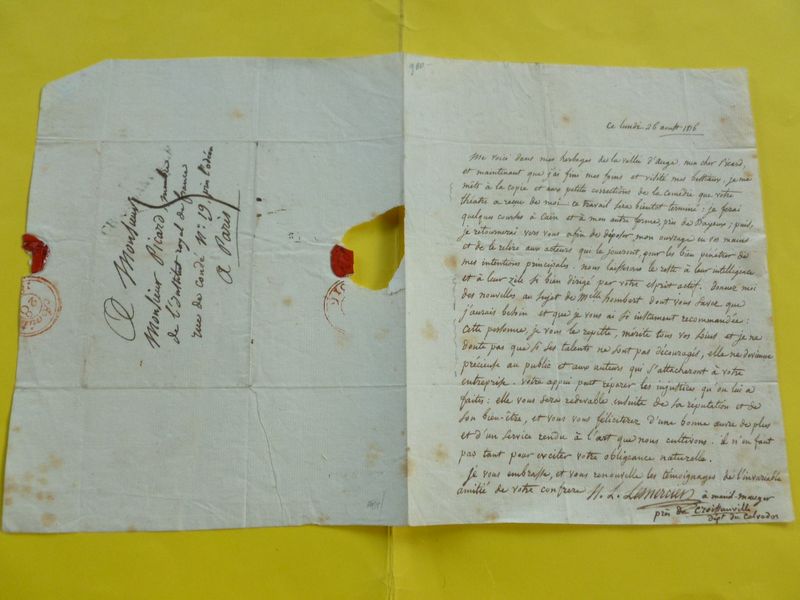 A Monsieur
Monsieur Picard membre
de l'Institut royal de france
rue de condé N.° 19 près l'odéon
A Paris
900
Ce lundi 26 aoust 1816
Me voici dans mes herbages de la vallée d'Auge, mon cher Picard,
et maintenant que j'ai fini mes foins et visité mes bestiaux, je me
mets à la copie et aux petites corrections de la comédie que votre
théâtre a reçue de moi. ce travail sera bientôt terminé : je ferai
quelques courses à Caën et à mon autre ferme, près de Bayeux ; puis,
je retournerai vers vous afin de déposer mon ouvrage en vos mains
et de le relire aux acteurs qui le joueront, pour les bien pénétrer de
mes intentions principales. nous laisserons le reste à leur intelligence
et à leur zèle si bien dirigé par votre esprit actif. Donnez moi
des nouvelles au sujet de Melle hombert dont vous savez que
j'aurais besoin et que je vous ai si instamment recommandée :
Cette personne, je vous le repette, mérite tous vos soins et je ne
doute pas que si ses talents ne sont pas découragés, elle ne devienne
précieuse au public et aux auteurs qui s'attacheront à votre
entreprise. Votre appui peut réparer les injustices qu'on lui a
faites : elle vous sera redevable ensuite de sa réputation et de
son bien-être, et vous vous féliciterez d'une bonne œuvre de plus
et d'un service rendu à l'art que nous cultivons : il n'en faut
pas tant pour exciter votre obligeance naturelle.
Je vous embrasse, et vous renouvelle les témoignages de l'invariable
amitié de votre confrere N. L. Lemercier
à mesnil-mauger
près de Croissanville
dépt du Calvados